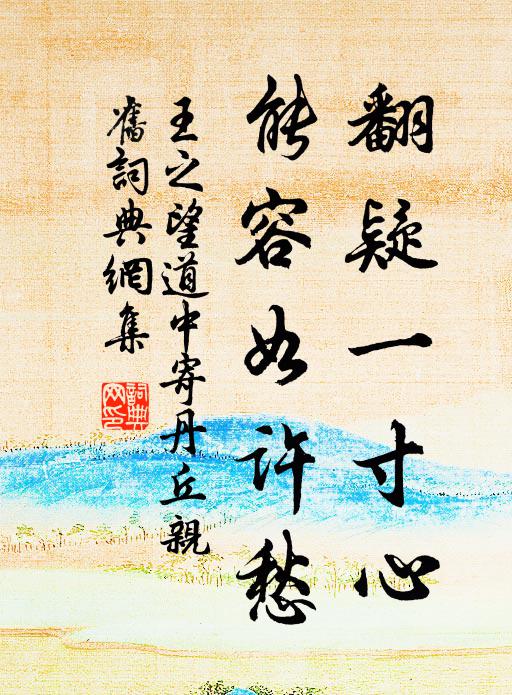 翻疑一寸心
能容如許愁
王之望道中寄丹丘親
舊詞典網集
詞典
網印